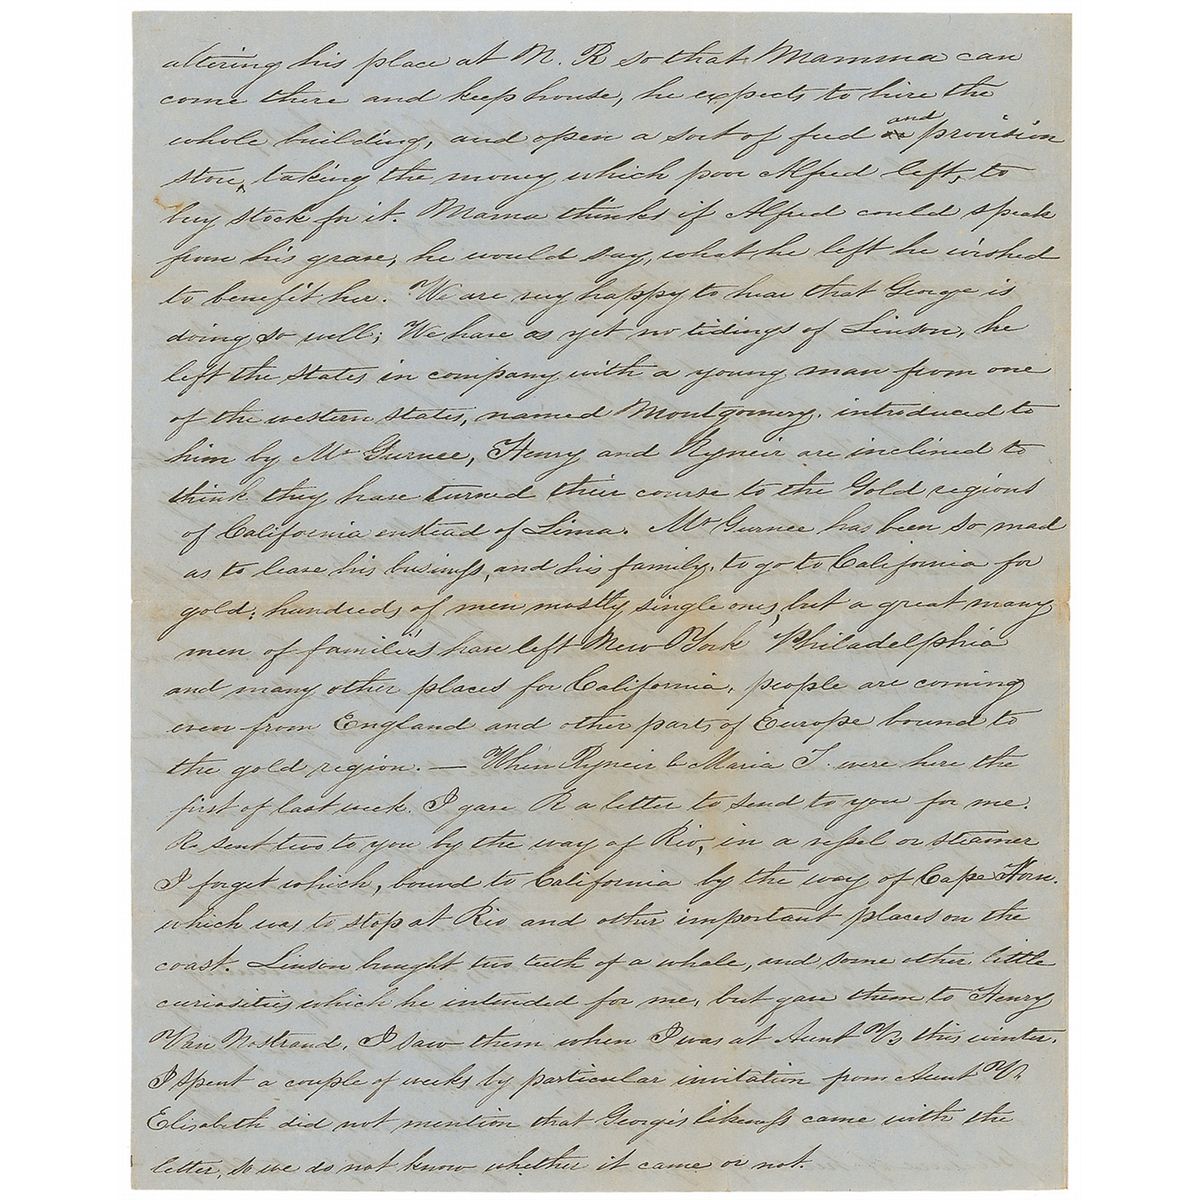 altering his place at M. R so that Mamma can
come there and keep house, he expects to hire the
whole building, and open a sort of feed and provision
store, taking the money which poor Alfred left, to
buy stock for it. Mama thinks if Alfred could speak
from his grave, he would say, what he left he wished
to benefit her. We are very happy to hear that George is
doing so well; We have as yet no tidings of Linson, he
left the states in company with a young man from one
of the western states, named Montgomery, introduced to
him by Mr Gurnee, Henry and Ryneir are inclined to
think they have turned their course to the Gold regions
of California instead of Lima. Mr Gurnee has been so mad
as to leave his business, and his family, to go to California for
gold; hundreds of men mostly single ones, but a great many
men of families have left New York Philadelphia
and many other places for California, people are coming
even from England and other parts of Europe bound to
the gold region. — When Ryneir & Maria T. were here the
first of last week. I gave R a letter to send to you for me.
He sent two to you by the way of Rio, in a vessel or steamer
I forget which, bound to California by the way of Cape Horn.
which was to stop at Rio and other important places on the
coast. Linson bought two teeth of a whale, and some other little
curiosities which he intended for me, but gave them to Henry
Van Nostrand, I saw them when I was at Aunt V's this winter.
I spent a couple of weeks by particular invitation from Aunt V.
Elisabeth did not mention that George's likeness came with the
letter, so we do not know whether it came or not.